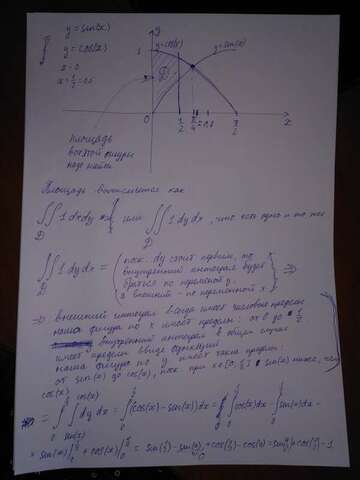 y = sin(x)
y = cos(x)
x = 0
x = 1/2 = 0.5
y
1
y=cos(x)
y=sin(x)
D
0
1/2
π/4
π/2
x
площадь
фигуры
надо найти
Площадь вычисляется как
∬ 1 dxdy или ∬ 1 dydx, что есть одно и то же
D D
∬ 1 dydx = { поск. dy стоит первым, то
D внутренний интеграл будет
браться по переменной y
а внешний - по переменной x } ⇒
⇒ внешний интеграл всегда имеет числовые пределы
наша фигура по x имеет пределы: от 0 до 1/2
внутренний интеграл в общем случае
имеет пределы ввиде функций
наша фигура по y имеет такие пределы:
от sin(x) до cos(x), поск. при x∈[0, 1/2] sin(x) ниже, чем
cos(x)
= ∫ ∫ dy dx = ∫ (cos(x) - sin(x))dx = ∫ cos(x)dx - ∫ sin(x)dx =
= sin(x)| + cos(x)| = sin(1/2) - sin(0) + cos(1/2) - cos(0) = sin(1/2) + cos(1/2) - 1